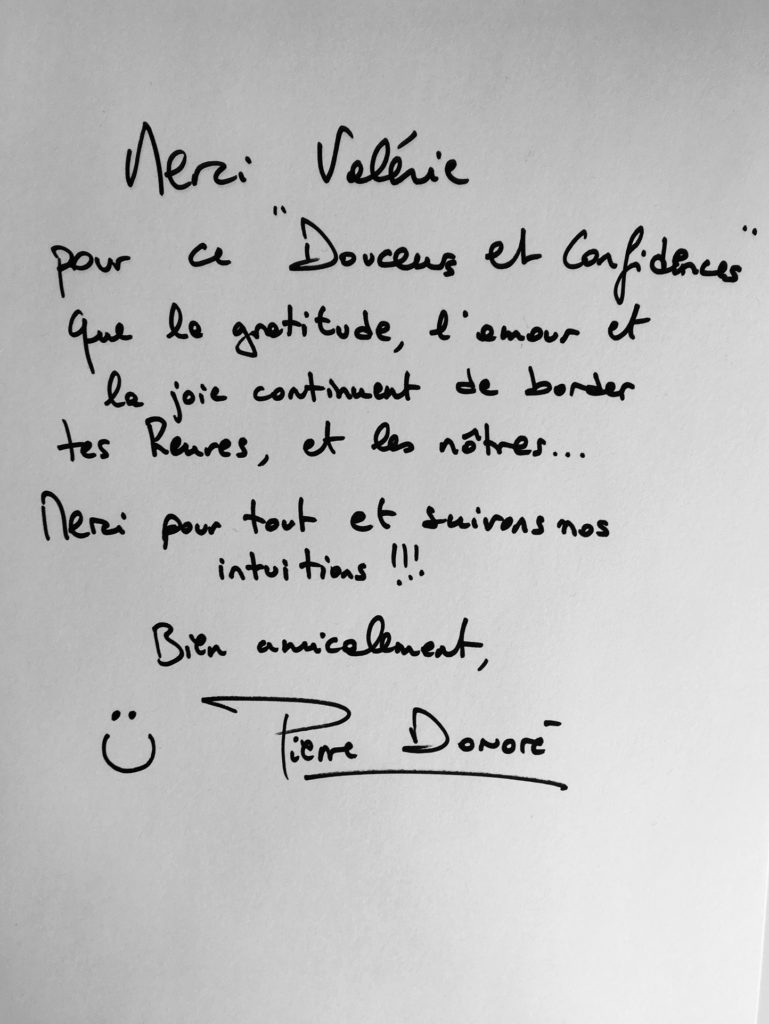 Merci Valérie
pour ce "Douceurs et Confidences"
que la gratitude, l'amour et
la joie continuent de border
tes heures, et les nôtres...
Merci pour tout et suivons nos
intuitions !!!
Bien amicalement,
Pierre Donoré